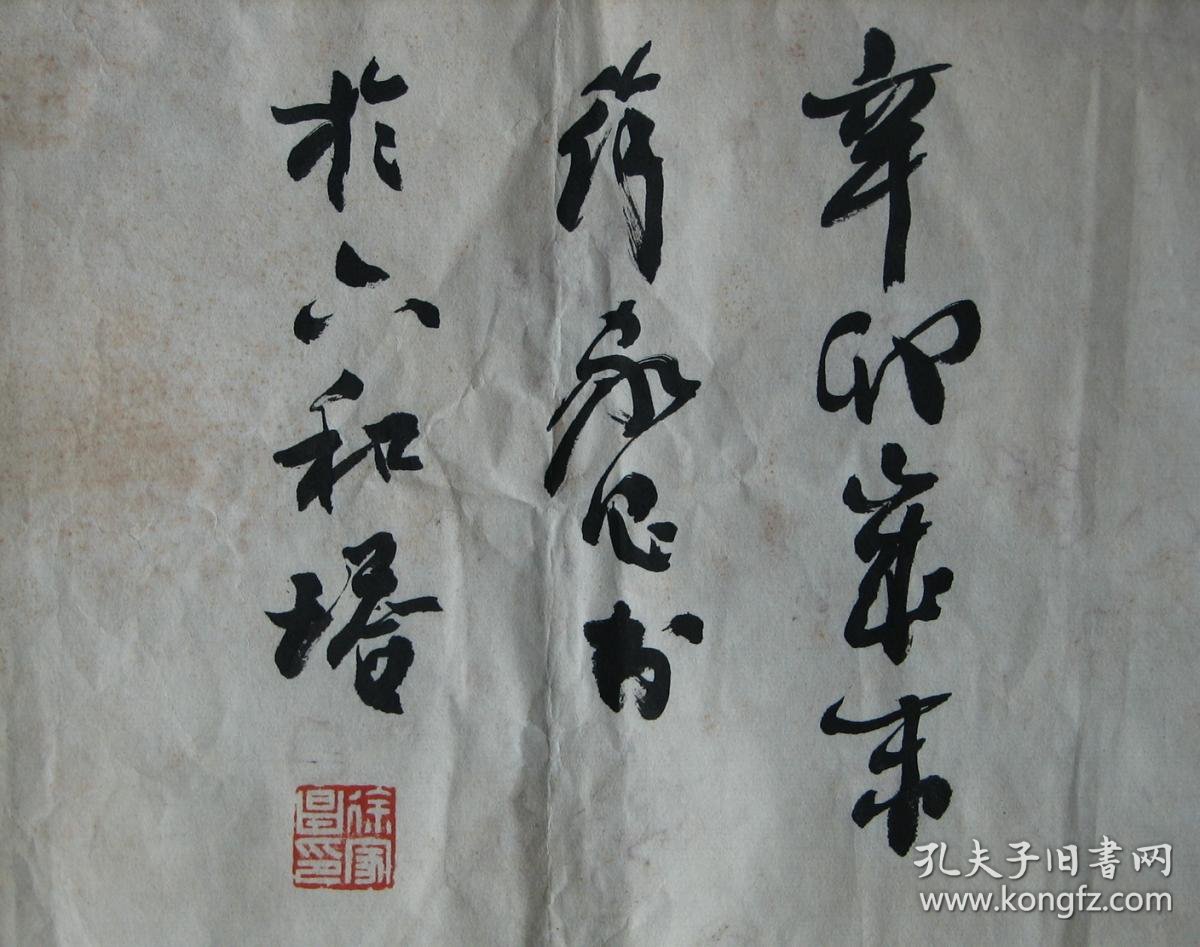 辛卯岁末
徐家昌书
於六和塔
徐家昌印
孔夫子旧書网
www.kongfz.com